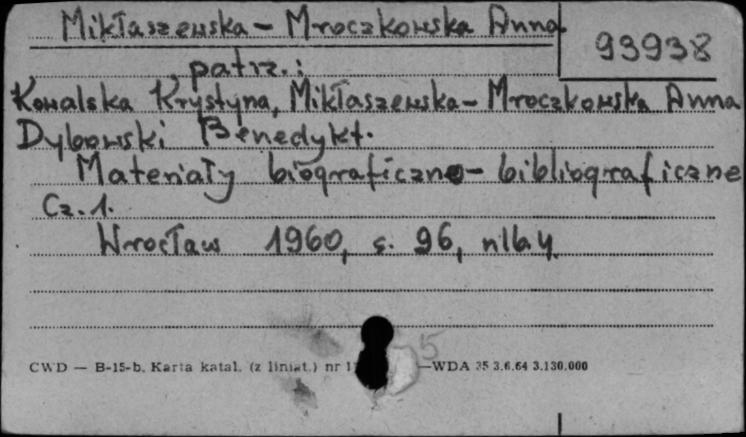 Mikłaszewska - Mroczkowska Anna
93938
patrz.:
Kowalska Krystyna, Mikłaszewska - Mroczkowska Anna
Dybowski Benedykt.
Materiały biograficzno - bibliograficzne
Cz. 1.
Wrocław 1960, s. 96, nlb 4.
5
CWD — B-15-b. Karta katal. (z liniat.) nr —WDA 35 3.6.64 3.130.000